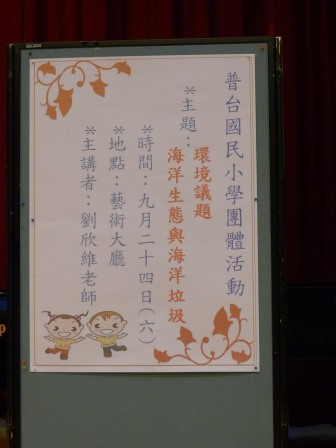 普台國民小學團體活動
＊主題：環境議題
海洋生態與海洋垃圾
＊時間：九月二十四日(六)
＊地點：藝術大廳
＊主講者：劉欣維老師